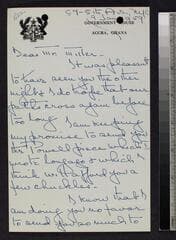 59-5th Ave, N.Y.C
9 Jan 1959
GOVERNMENT HOUSE
ACCRA, GHANA
Dear Mr.
It was pleasant
to have seen you the other
night & I do hope that our
paths cross again before
too long. I am keeping
my promise to send you
the piece which I
wrote & which I
think will afford you a
few chuckles.
I know that I
am doing you no favor
to send you so much to